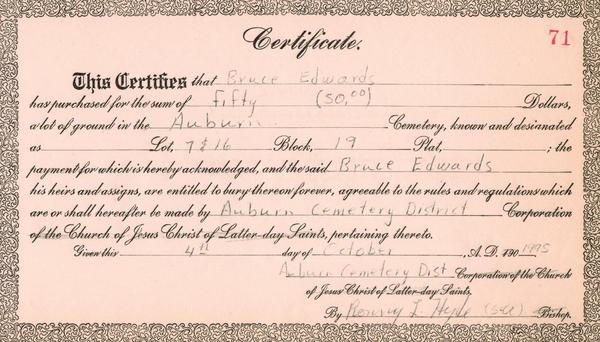 Certificate.
71
This Certifies that Bruce Edwards
has purchased for the sum of fifty (50.00) Dollars,
a lot of ground in the Auburn Cemetery, known and designated
as Lot, 7 & 16 Block, 19 Plat, ; the
payment for which is hereby acknowledged, and the said Bruce Edwards
his heirs and assigns, are entitled to bury thereon forever, agreeable to the rules and regulations which
are or shall hereafter be made by Auburn Cemetery District Corporation
of the Church of Jesus Christ of Latter-day Saints, pertaining thereto.
Given this 4th day of October , A.D. 190 1995
Auburn Cemetery Dist Corporation of the Church
of Jesus Christ of Latter-day Saints.
By L. Hyde Bishop.